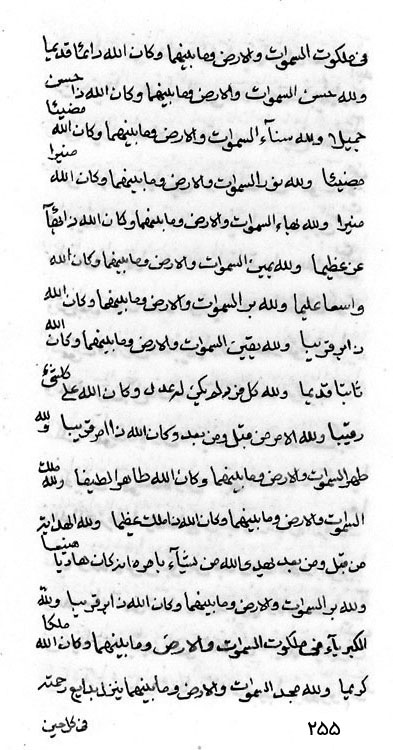 فى ملكوت السموات والارض وما بينهما وكان الله دائما قديما
ولله حسن السموات والارض وما بينهما وكان الله ذا حسن
جميلا ولله سنآء السموات والارض وما بينهما وكان الله مضيئا
مضيئا ولله نور السموات والارض وما بينهما وكان الله منيرا
منيرا ولله بهاء السموات والارض وما بينهما وكان الله ذا بهآء
عز عظيما ولله يمين السموات والارض وما بينهما وكان الله
واسعا عليما ولله بر السموات والارض وما بينهما وكان الله
ذا بر قريبا ولله يقين السموات والارض وما بينهما وكان الله
ثابتا قديما ولله كل من لم يكن له عدل وكان الله على كلشئ
رقيبا ولله الامر من قبل ومن بعد وكان الله ذا امر قريبا ولله
طهر السموات والارض وما بينهما وكان الله طاهرا لطيفا ولله ملك
السموات والارض وما بينهما وكان الله ذا ملك عظيما ولله الهداية
من قبل ومن بعد يهدى الله من يشآء بامره انه كان هاديا
ولله بر السموات والارض وما بينهما وكان الله ذا بر قريبا ولله
الكبريآء فى ملكوت السموات والارض وما بينهما وكان الله ملكا
كريما ولله مجد السموات والارض وما بينهما ينزل بدايع رحمته
فى كل حين
٢٥٥